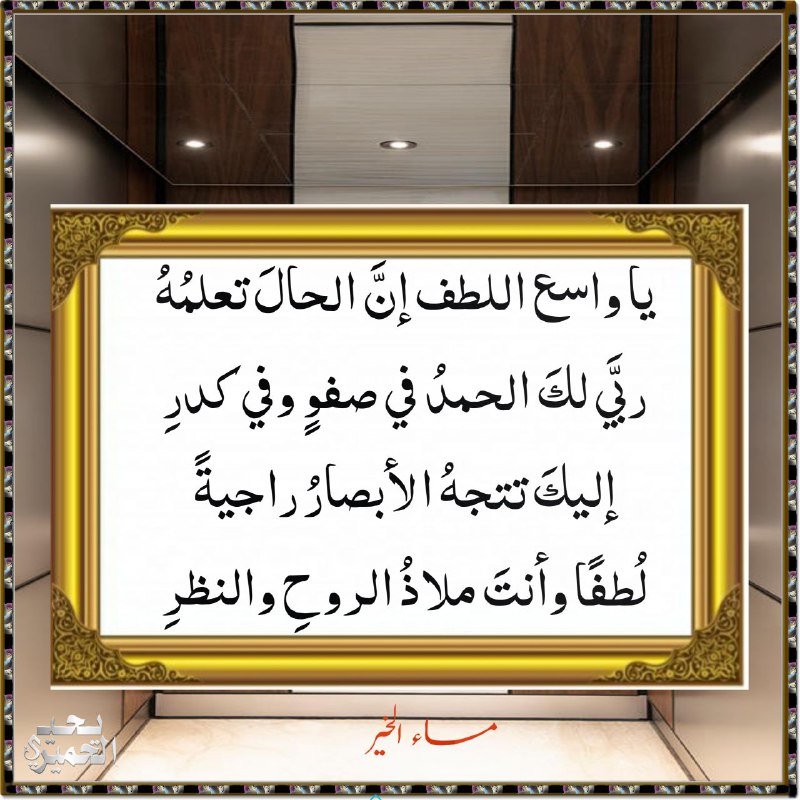 يا واسع اللطف إنَّ الحالَ تعلمُهُ
ربَّي لكَ الحمدُ في صفوٍ وفي كدرِ
إليكَ تتجهُ الأبصارُ راجيةً
لُطفًا وأنتَ ملاذُ الروحِ والنظرِ
مساء الخير